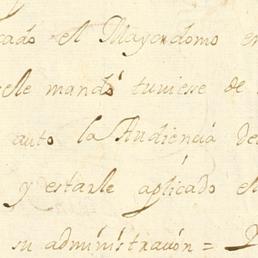 cado el Mayordomo en
sele mandó tuviesse de
auto la Audiencia de
y estarle aplicado el
su administracion =